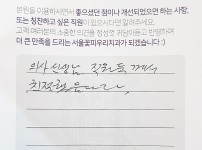 본원을 이용하시면서 좋으셨던 점이나 개선되었으면 하는 사항,
또는 칭찬하고 싶은 직원이 있으시다면 알려주세요.
고객 여러분의 소중한 의견을 정성껏 귀담아듣고 반영하여
더 큰 만족을 드리는 서울꽃피우리치과가 되겠습니다 :)
의사 선생님 직원들 께서
친절했습니다,